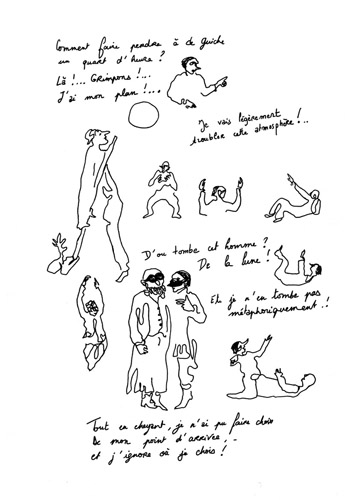 Comment faire perdre à de Guiche
un quart d'heure ?
Là !... Grimpons !...
J'ai mon plan !...
Je vais légèrement
troubler cette atmosphère !..
D'où tombe cet homme ?
De la lune !
Eh je n'en tombe pas
métaphoriquement !
Tout en cheyent, je n'ai pu faire choix
De mon point d'arrivée, -
et j'ignore où je chois !